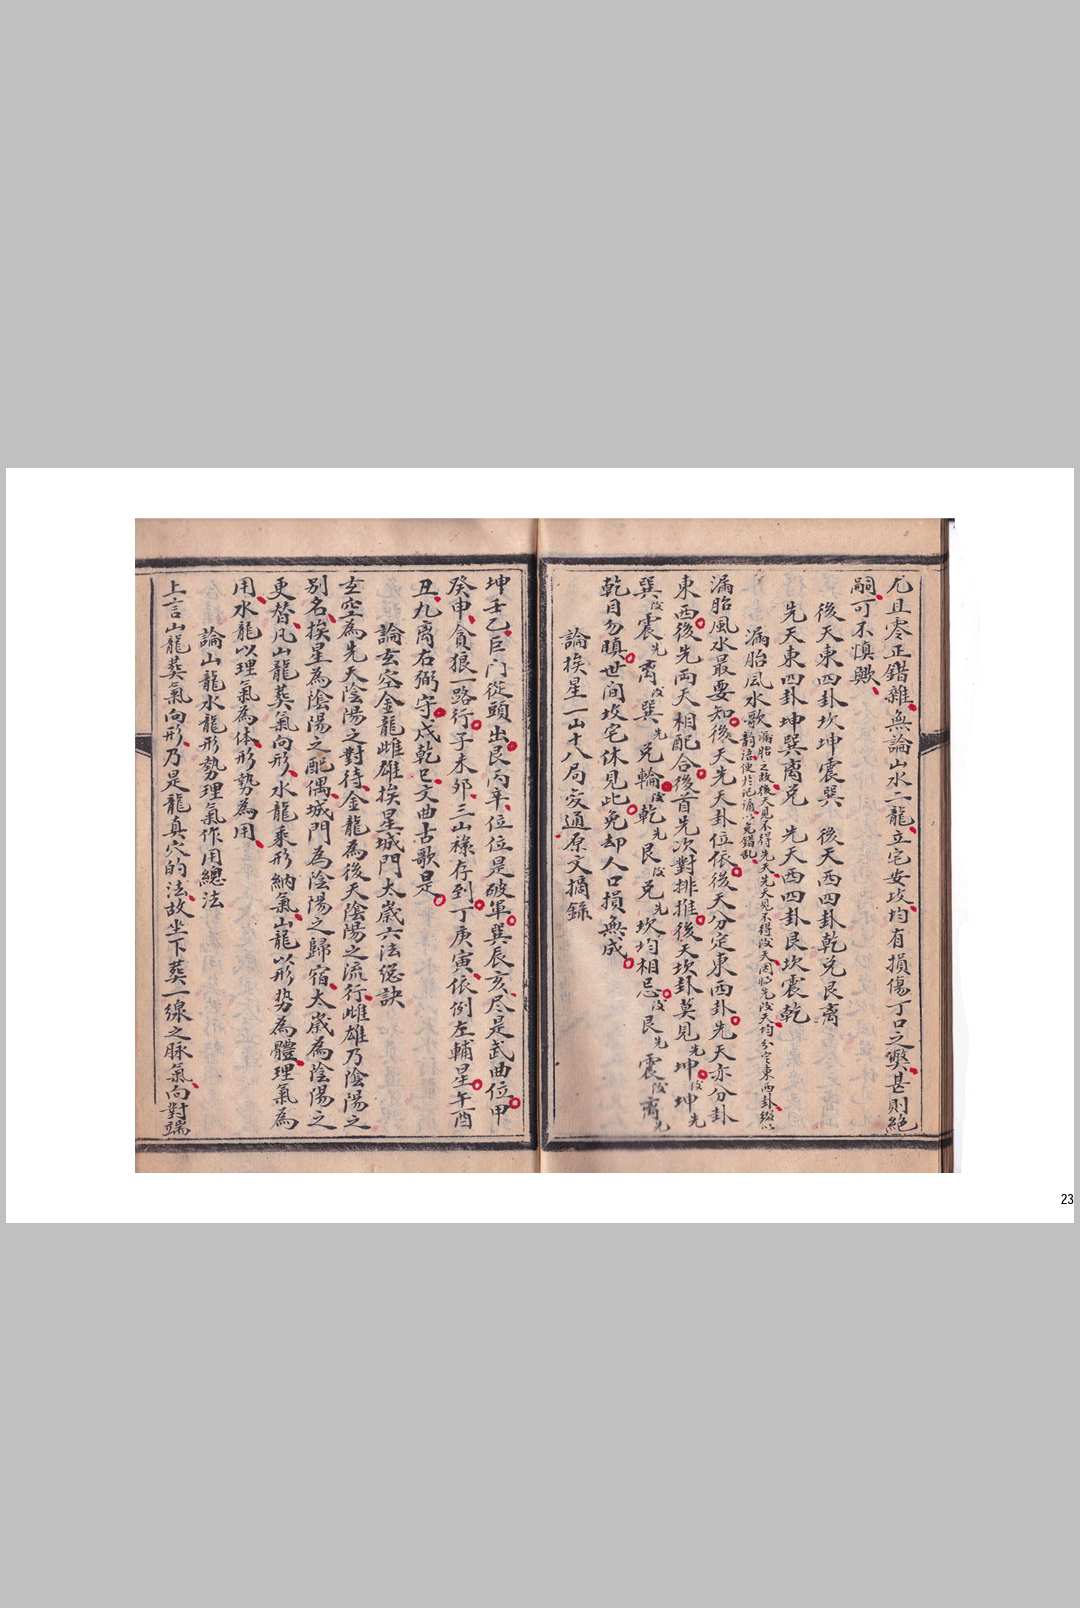 尤且零正錯雜無論山水二龍立宅安坟均有損傷丁口之獘甚則絕
嗣可不慎歟
後天東四卦坎坤震巽 後天西四卦乾兌艮离
先天東四卦坤巽离兌 先天西四卦艮坎震乾
漏胎風水歌
漏胎之故後天見不得先天先天見不得后天因临先后天均分定東西卦
韵語便於記誦免錯乱
漏胎風水最要知後天先天卦位依後天分定東西卦先天亦分卦
東西後先両天相配合後首先次對排推後天坎卦莫見先坤后坤先
巽后震先离后巽先兌輪后乾先艮后兌先坎均相忌后艮先震后离先
乾目勿瞋世间坟宅休見此免却人口損無成
論挨星一山十八局变通原文摘錄
坤壬乙巨门從頭出艮丙辛位位是破軍巽辰亥尽是武曲位甲
癸申貪狼一路行子未夘三山祿存到丁庚寅依例左輔星午酉
丑九离右弼守戍乾巳文曲古歌是
論玄空金龍雌雄挨星城門太嵗六法总訣
玄空為先天陰陽之對待金龍為後天陰陽之流行雌雄乃陰陽之
别名挨星為陰陽之配偶城門為陰陽之歸宿太嵗為陰陽之
更替凡山龍葬氣向形水龍乘形納氣山龍以形势為體理氣為
用水龍以理氣為体形势為用
論山龍水龍形勢理氣作用總法
上言山龍葬氣向形乃是龍真穴的法故坐下葬一線之脉氣向對端
23